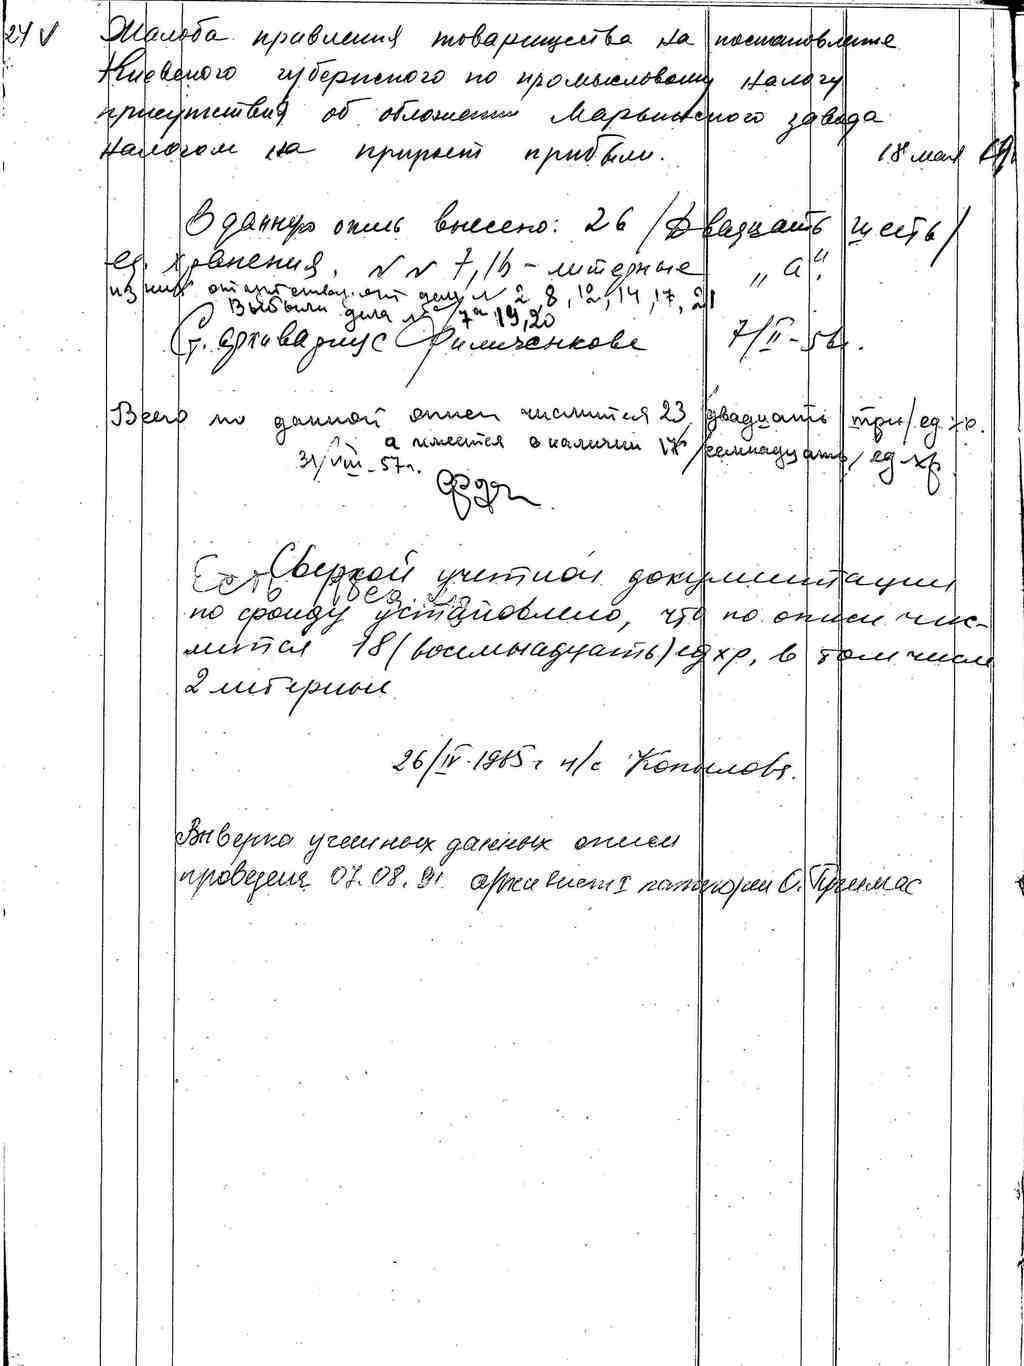 24 V Жалоба правления товарищества на постановление
Киевского губернского по промысловому налогу
присутствия об обложении Марьинского завода
налогом на прирост прибыли. 18 мая
В данную опись внесено: 26 /Двадцать шесть/
ед. хранения, №№ 7, 16 - литерные „а".
из них отсутствуют дела № 2, 8, 12, 14, 17, 21
Выбыли дела №№ 7а, 19, 20
Ст. архивариус Филиченкова 7/II-56г.
Всего по данной описи числится 23 /двадцать три/ ед. хр.
а имеется в наличии 17 /семнадцать/ ед. хр.
31/VIII-57г.
Сверкой учетной документации
Есть
по фонду установлено, что по описи чис-
лится 18 (восемнадцать) ед хр, в том числе
2 литерные
26/IV-1985 г н/с Копылова.
Выверка учетных данных описи
проведена 07.08.91 архивист I категории О. Примас